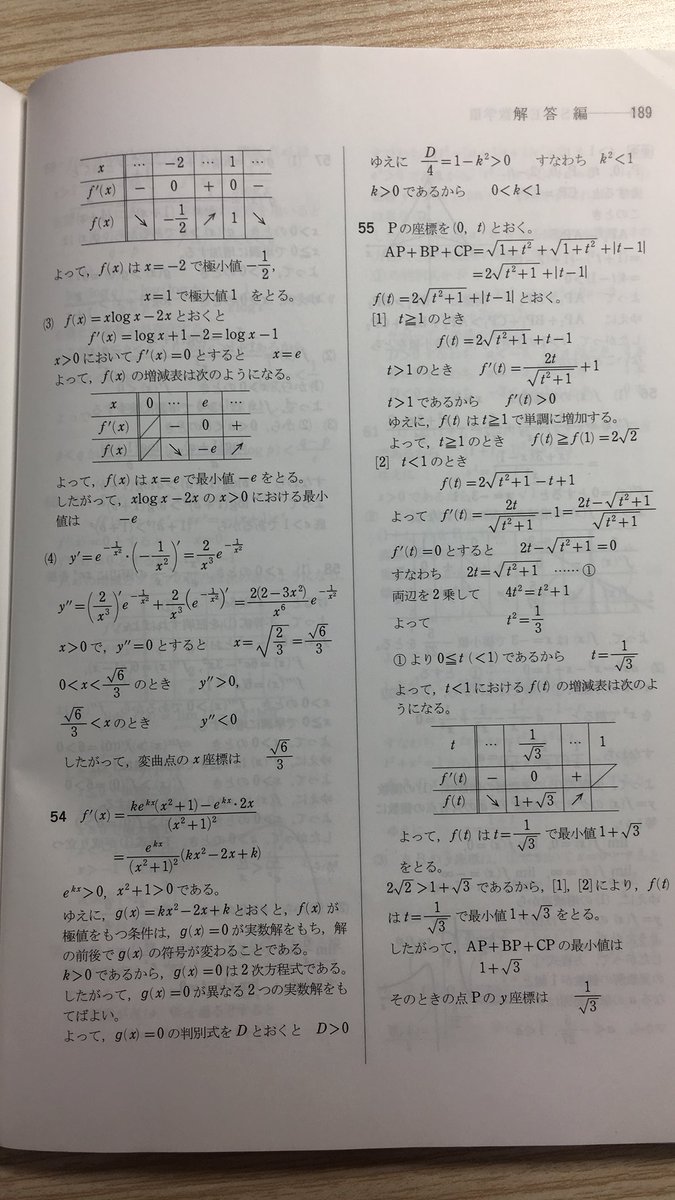 解 答 編 189
x … -2 … 1 …
f'(x) - 0 + 0 -
f(x) ↘ -1/2 ↗ 1 ↘
よって,f(x) は x=-2 で極小値 -1/2,
x=1 で極大値 1 をとる。
(3) f(x)=xlog x-2x とおくと
f'(x)=log x+1-2=log x-1
x>0 において f'(x)=0 とすると x=e
よって,f(x) の増減表は次のようになる。
x 0 … e …
f'(x) - 0 +
f(x) ↘ -e ↗
よって,f(x) は x=e で最小値 -e をとる。
したがって,xlog x-2x の x>0 における最小
値は -e
(4) y'=e^{-1/x²}・(-1/x²)'=2/x³ e^{-1/x²}
y''=(2/x³)'e^{-1/x²}+2/x³(e^{-1/x²})'=2(2-3x²)/x⁶ e^{-1/x²}
x>0 で,y''=0 とすると x=√(2/3)=√6/3
0<x<√6/3 のとき y''>0,
√6/3<x のとき y''<0
したがって,変曲点の x 座標は √6/3
54 f'(x)=(ke^{kx}(x²+1)-e^{kx}・2x)/(x²+1)²
=e^{kx}/(x²+1)² (kx²-2x+k)
e^{kx}>0,x²+1>0 である。
ゆえに,g(x)=kx²-2x+k とおくと,f(x) が
極値をもつ条件は,g(x)=0 が実数解をもち,解
の前後で g(x) の符号が変わることである。
k>0 であるから,g(x)=0 は 2 次方程式である。
したがって,g(x)=0 が異なる 2 つの実数解をも
てばよい。
よって,g(x)=0 の判別式を D とおくと D>0
ゆえに D/4=1-k²>0 すなわち k²<1
k>0 であるから 0<k<1
55 P の座標を (0, t) とおく。
AP+BP+CP=√(1+t²)+√(1+t²)+|t-1|
=2√(t²+1)+|t-1|
f(t)=2√(t²+1)+|t-1| とおく。
[1] t≧1 のとき
f(t)=2√(t²+1)+t-1
t>1 のとき f'(t)=2t/√(t²+1)+1
t>1 であるから f'(t)>0
ゆえに,f(t) は t≧1 で単調に増加する。
よって,t≧1 のとき f(t)≧f(1)=2√2
[2] t<1 のとき
f(t)=2√(t²+1)-t+1
よって f'(t)=2t/√(t²+1)-1=(2t-√(t²+1))/√(t²+1)
f'(t)=0 とすると 2t-√(t²+1)=0
すなわち 2t=√(t²+1) ……①
両辺を 2 乗して 4t²=t²+1
よって t²=1/3
① より 0≦t (<1) であるから t=1/√3
よって,t<1 における f(t) の増減表は次のよ
うになる。
t … 1/√3 … 1
f'(t) - 0 +
f(t) ↘ 1+√3 ↗
よって,f(t) は t=1/√3 で最小値 1+√3
をとる。
2√2>1+√3 であるから,[1],[2] により,f(t)
は t=1/√3 で最小値 1+√3 をとる。
したがって,AP+BP+CP の最小値は
1+√3
そのときの点 P の y 座標は 1/√3